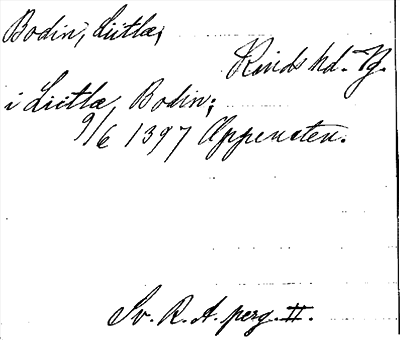 Bodin, Lütla,
Kinds hd. Vg.
i Lutlæ, Bodin;
9/6 1397 Öppensten.
Sv. R. A. perg. II.